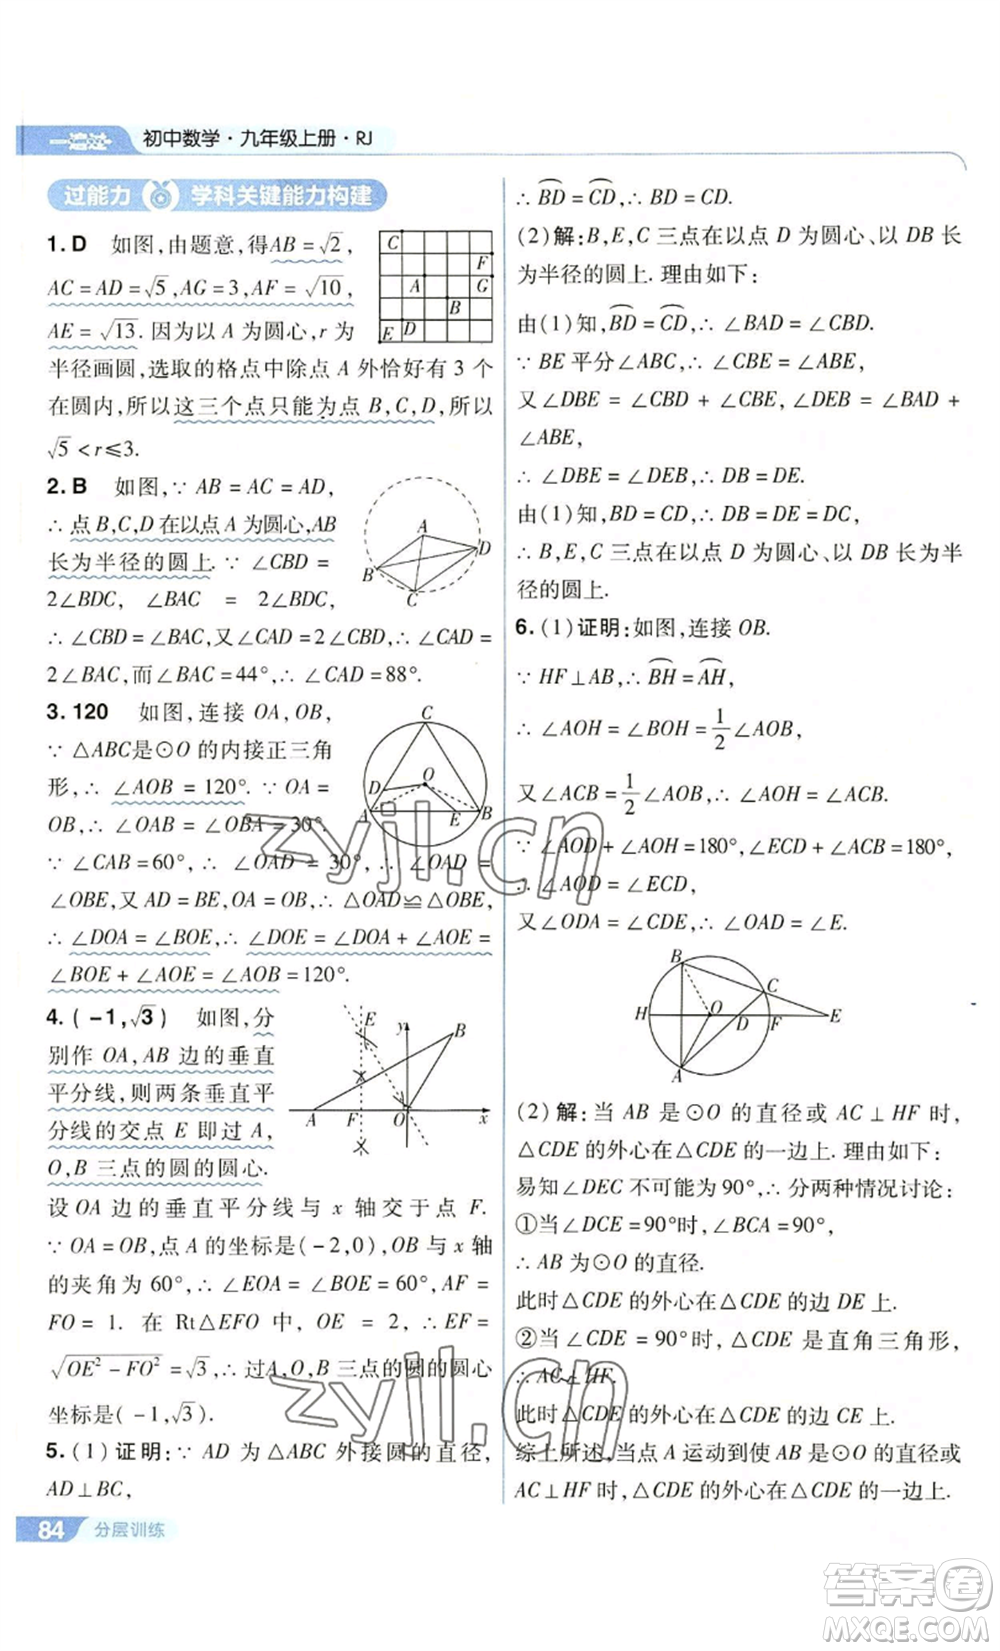 一遍过 初中数学·九年级上册·RJ
过能力 学科关键能力构建
1. D 如图,由题意,得AB=√2,
AC=AD=√5,AG=3,AF=√10,
AE=√13. 因为以 A 为圆心,r 为
半径画圆,选取的格点中除点 A 外恰好有 3 个
在圆内,所以这三个点只能为点 B,C,D,所以
√5<r≤3.
C
F
A
G
B
E D
2. B 如图,∵ AB=AC=AD,
∴ 点 B,C,D 在以点 A 为圆心,AB
长为半径的圆上. ∵ ∠CBD=
2∠BDC, ∠BAC = 2∠BDC,
∴ ∠CBD=∠BAC,又∠CAD=2∠CBD,∴ ∠CAD=
2∠BAC,而∠BAC=44°,∴ ∠CAD=88°.
A
D
B
C
3. 120 如图,连接 OA,OB,
∵ △ABC是⊙O 的内接正三角
形,∴ ∠AOB=120°. ∵ OA=
OB,∴ ∠OAB=∠OBA=30°.
∵ ∠CAB=60°,∴ ∠OAD=30°,∴ ∠OAD=
∠OBE,又 AD=BE,OA=OB,∴ △OAD≌△OBE,
∴ ∠DOA=∠BOE,∴ ∠DOE=∠DOA+∠AOE=
∠BOE+∠AOE=∠AOB=120°.
C
D
O
A
E
B
4. (-1,√3) 如图,分
别作 OA,AB 边的垂直
平分线,则两条垂直平
分线的交点 E 即过 A,
O,B 三点的圆的圆心.
设 OA 边的垂直平分线与 x 轴交于点 F.
∵ OA=OB,点 A 的坐标是(-2,0),OB 与 x 轴
的夹角为 60°,∴ ∠EOA=∠BOE=60°,AF=
FO=1. 在 Rt△EFO 中, OE = 2, ∴ EF=
√(OE²-FO²)=√3,∴ 过A,O,B 三点的圆的圆心
坐标是(-1,√3).
E
y
B
A
F
O
x
5. (1) 证明:∵ AD 为 △ABC 外接圆的直径,
AD⊥BC,
84 分层训练
∴ BD=CD,∴ BD=CD.
(2)解:B,E,C 三点在以点 D 为圆心、以 DB 长
为半径的圆上. 理由如下:
由(1)知,BD=CD,∴ ∠BAD=∠CBD.
∵ BE 平分∠ABC,∴ ∠CBE=∠ABE,
又∠DBE=∠CBD+∠CBE,∠DEB=∠BAD+
∠ABE,
∴ ∠DBE=∠DEB,∴ DB=DE.
由(1)知,BD=CD,∴ DB=DE=DC,
∴ B,E,C 三点在以点 D 为圆心、以 DB 长为半
径的圆上.
6. (1)证明:如图,连接 OB.
∵ HF⊥AB,∴ BH=AH,
∴ ∠AOH=∠BOH=1/2∠AOB,
又∠ACB=1/2∠AOB,∴ ∠AOH=∠ACB.
∵ ∠AOD+∠AOH=180°,∠ECD+∠ACB=180°,
∴ ∠AOD=∠ECD,
又∠ODA=∠CDE,∴ ∠OAD=∠E.
B
C
H
O
D
F
E
A
(2) 解:当 AB 是⊙O 的直径或 AC⊥HF 时,
△CDE 的外心在△CDE 的一边上. 理由如下:
易知∠DEC 不可能为 90°,∴ 分两种情况讨论:
①当∠DCE=90°时,∠BCA=90°,
∴ AB为⊙O 的直径.
此时△CDE 的外心在△CDE 的边 DE 上.
②当∠CDE=90°时,△CDE 是直角三角形,
∴AC⊥HF.
此时△CDE 的外心在△CDE 的边 CE 上.
综上所述,当点 A 运动到使 AB 是⊙O 的直径或
AC⊥HF 时,△CDE 的外心在△CDE 的一边上.
zyjl.cn
zyjl.cn
答案圈
MXQE.COM